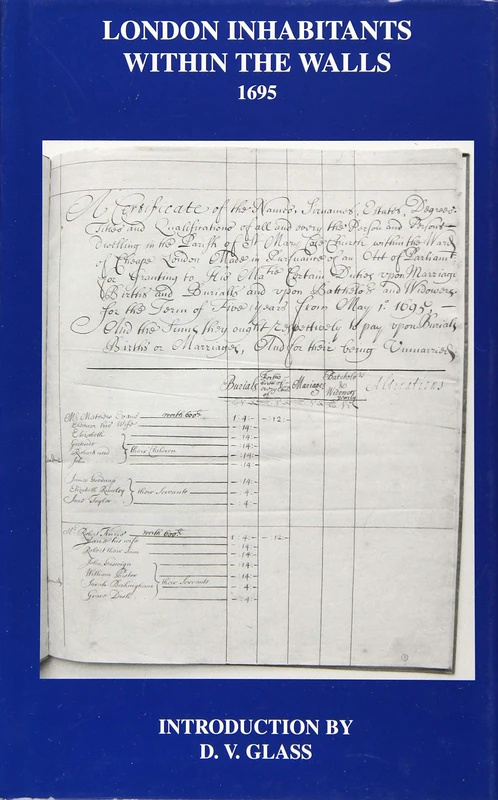 LONDON INHABITANTS
WITHIN THE WALLS
1695
A Certificate of the Names, Sirnames, Estates, Degrees
Titles and Qualifications of all and every the Person and Persons
Dwelling in the Parish of St Mary Cole Church within the Ward
of Cheape London Made in Pursuance of an Act of Parliamt
for Granting to His Matie Certain Duties upon Marriages
Births and Burialls and upon Batchelors and Widowers
for the Term of Five Years from May 1st 1695
And the Sums they ought respectively to pay upon Burials
Births or Marriages, And for their being Unmarried
Burials
Marriages
Batchelors
Widowers
Alterations
Mr Mathew Evans worth 600l. 1:4:- -12:-
his Wife -:14:-
Elizabeth -:14:-
-:14:-
their Children -:14:-
-:14:-
-:4:-
Elizabeth their Servants -:4:-
Taylor -:4:-
Mr Robert worth 600l. 1:4:- -12:-
his wife -:14:-
Robert their Sonn -:14:-
John
William
Sarah their Servants
Grace
INTRODUCTION BY
D. V. GLASS